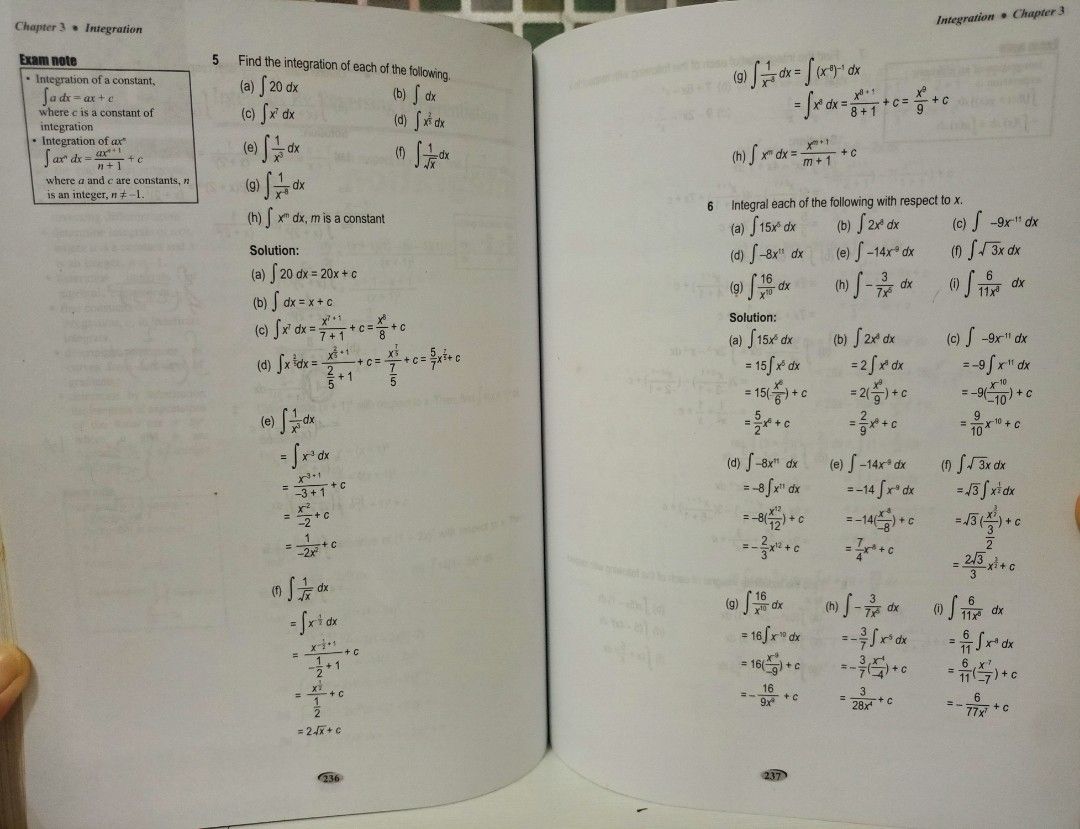 Chapter 3 • Integration
Exam note
• Integration of a constant,
∫a dx = ax + c
where c is a constant of
integration
• Integration of axⁿ
∫axⁿ dx = axⁿ⁺¹/(n + 1) + c
where a and c are constants, n
is an integer, n ≠ –1.
5 Find the integration of each of the following.
(a) ∫20 dx (b) ∫ dx
(c) ∫x⁷ dx (d) ∫x^(2/5) dx
(e) ∫1/x³ dx (f) ∫1/√x dx
(g) ∫1/x⁻⁸ dx
(h) ∫ xᵐ dx, m is a constant
Solution:
(a) ∫20 dx = 20x + c
(b) ∫ dx = x + c
(c) ∫x⁷ dx = x⁷⁺¹/(7 + 1) + c = x⁸/8 + c
(d) ∫x^(2/5) dx = x^(2/5 + 1)/(2/5 + 1) + c = x^(7/5)/(7/5) + c = 5/7 x^(7/5) + c
(e) ∫1/x³ dx
= ∫x⁻³ dx
= x⁻³⁺¹/(–3 + 1) + c
= x⁻²/–2 + c
= 1/–2x² + c
(f) ∫1/√x dx
= ∫x^(–1/2) dx
= x^(–1/2 + 1)/(–1/2 + 1) + c
= x^(1/2)/(1/2) + c
= 2√x + c
236
Integration • Chapter 3
(g) ∫1/x⁻⁸ dx = ∫(x⁻⁸)⁻¹ dx
= ∫x⁸ dx = x⁸⁺¹/(8 + 1) + c = x⁹/9 + c
(h) ∫ xᵐ dx = xᵐ⁺¹/(m + 1) + c
6 Integral each of the following with respect to x.
(a) ∫15x⁵ dx (b) ∫2x⁸ dx (c) ∫ –9x⁻¹¹ dx
(d) ∫–8x¹¹ dx (e) ∫–14x⁻⁹ dx (f) ∫√3x dx
(g) ∫16/x¹⁰ dx (h) ∫–3/7x⁵ dx (i) ∫6/11x⁸ dx
Solution:
(a) ∫15x⁵ dx (b) ∫2x⁸ dx (c) ∫ –9x⁻¹¹ dx
= 15∫x⁵ dx = 2∫x⁸ dx = –9∫x⁻¹¹ dx
= 15(x⁶/6) + c = 2(x⁹/9) + c = –9(x⁻¹⁰/–10) + c
= 5/2 x⁶ + c = 2/9 x⁹ + c = 9/10 x⁻¹⁰ + c
(d) ∫–8x¹¹ dx (e) ∫–14x⁻⁹ dx (f) ∫√3x dx
= –8∫x¹¹ dx = –14∫x⁻⁹ dx = √3∫x^(1/2) dx
= –8(x¹²/12) + c = –14(x⁻⁸/–8) + c = √3(x^(3/2)/(3/2)) + c
= –2/3 x¹² + c = 7/4 x⁻⁸ + c = 2√3/3 x^(3/2) + c
(g) ∫16/x¹⁰ dx (h) ∫–3/7x⁵ dx (i) ∫6/11x⁸ dx
= 16∫x⁻¹⁰ dx = –3/7∫x⁻⁵ dx = 6/11∫x⁻⁸ dx
= 16(x⁻⁹/–9) + c = –3/7(x⁻⁴/–4) + c = 6/11(x⁻⁷/–7) + c
= –16/9x⁹ + c = 3/28x⁴ + c = –6/77x⁷ + c
237